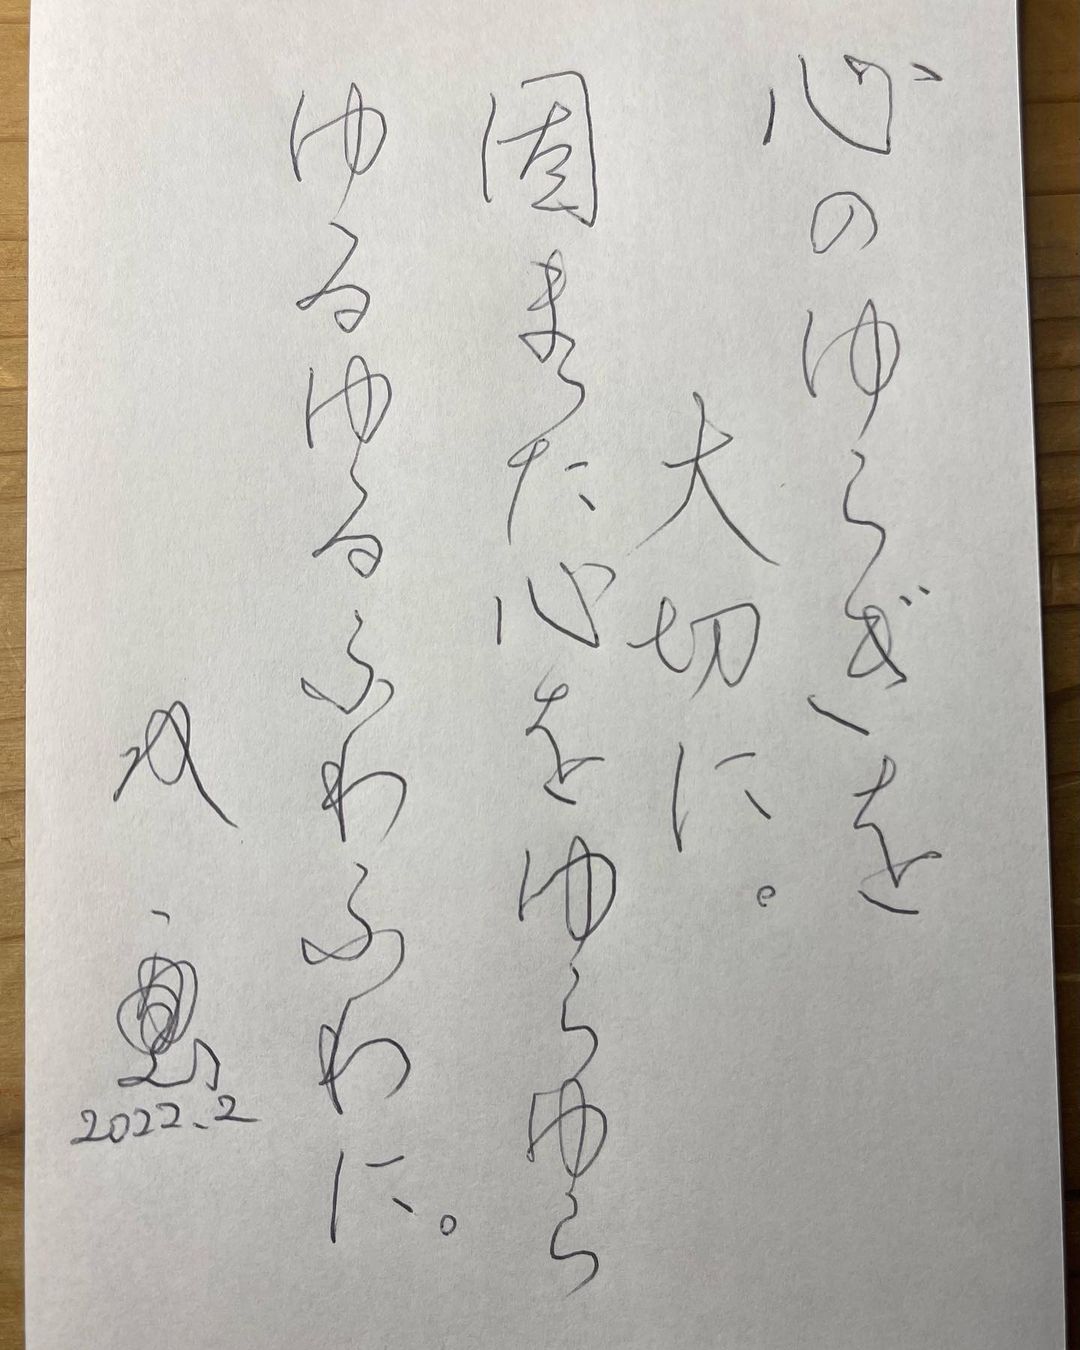 心のゆらぎを
大切に。
固まった心をゆらゆら
ゆるゆるふわふわに。
2022.2